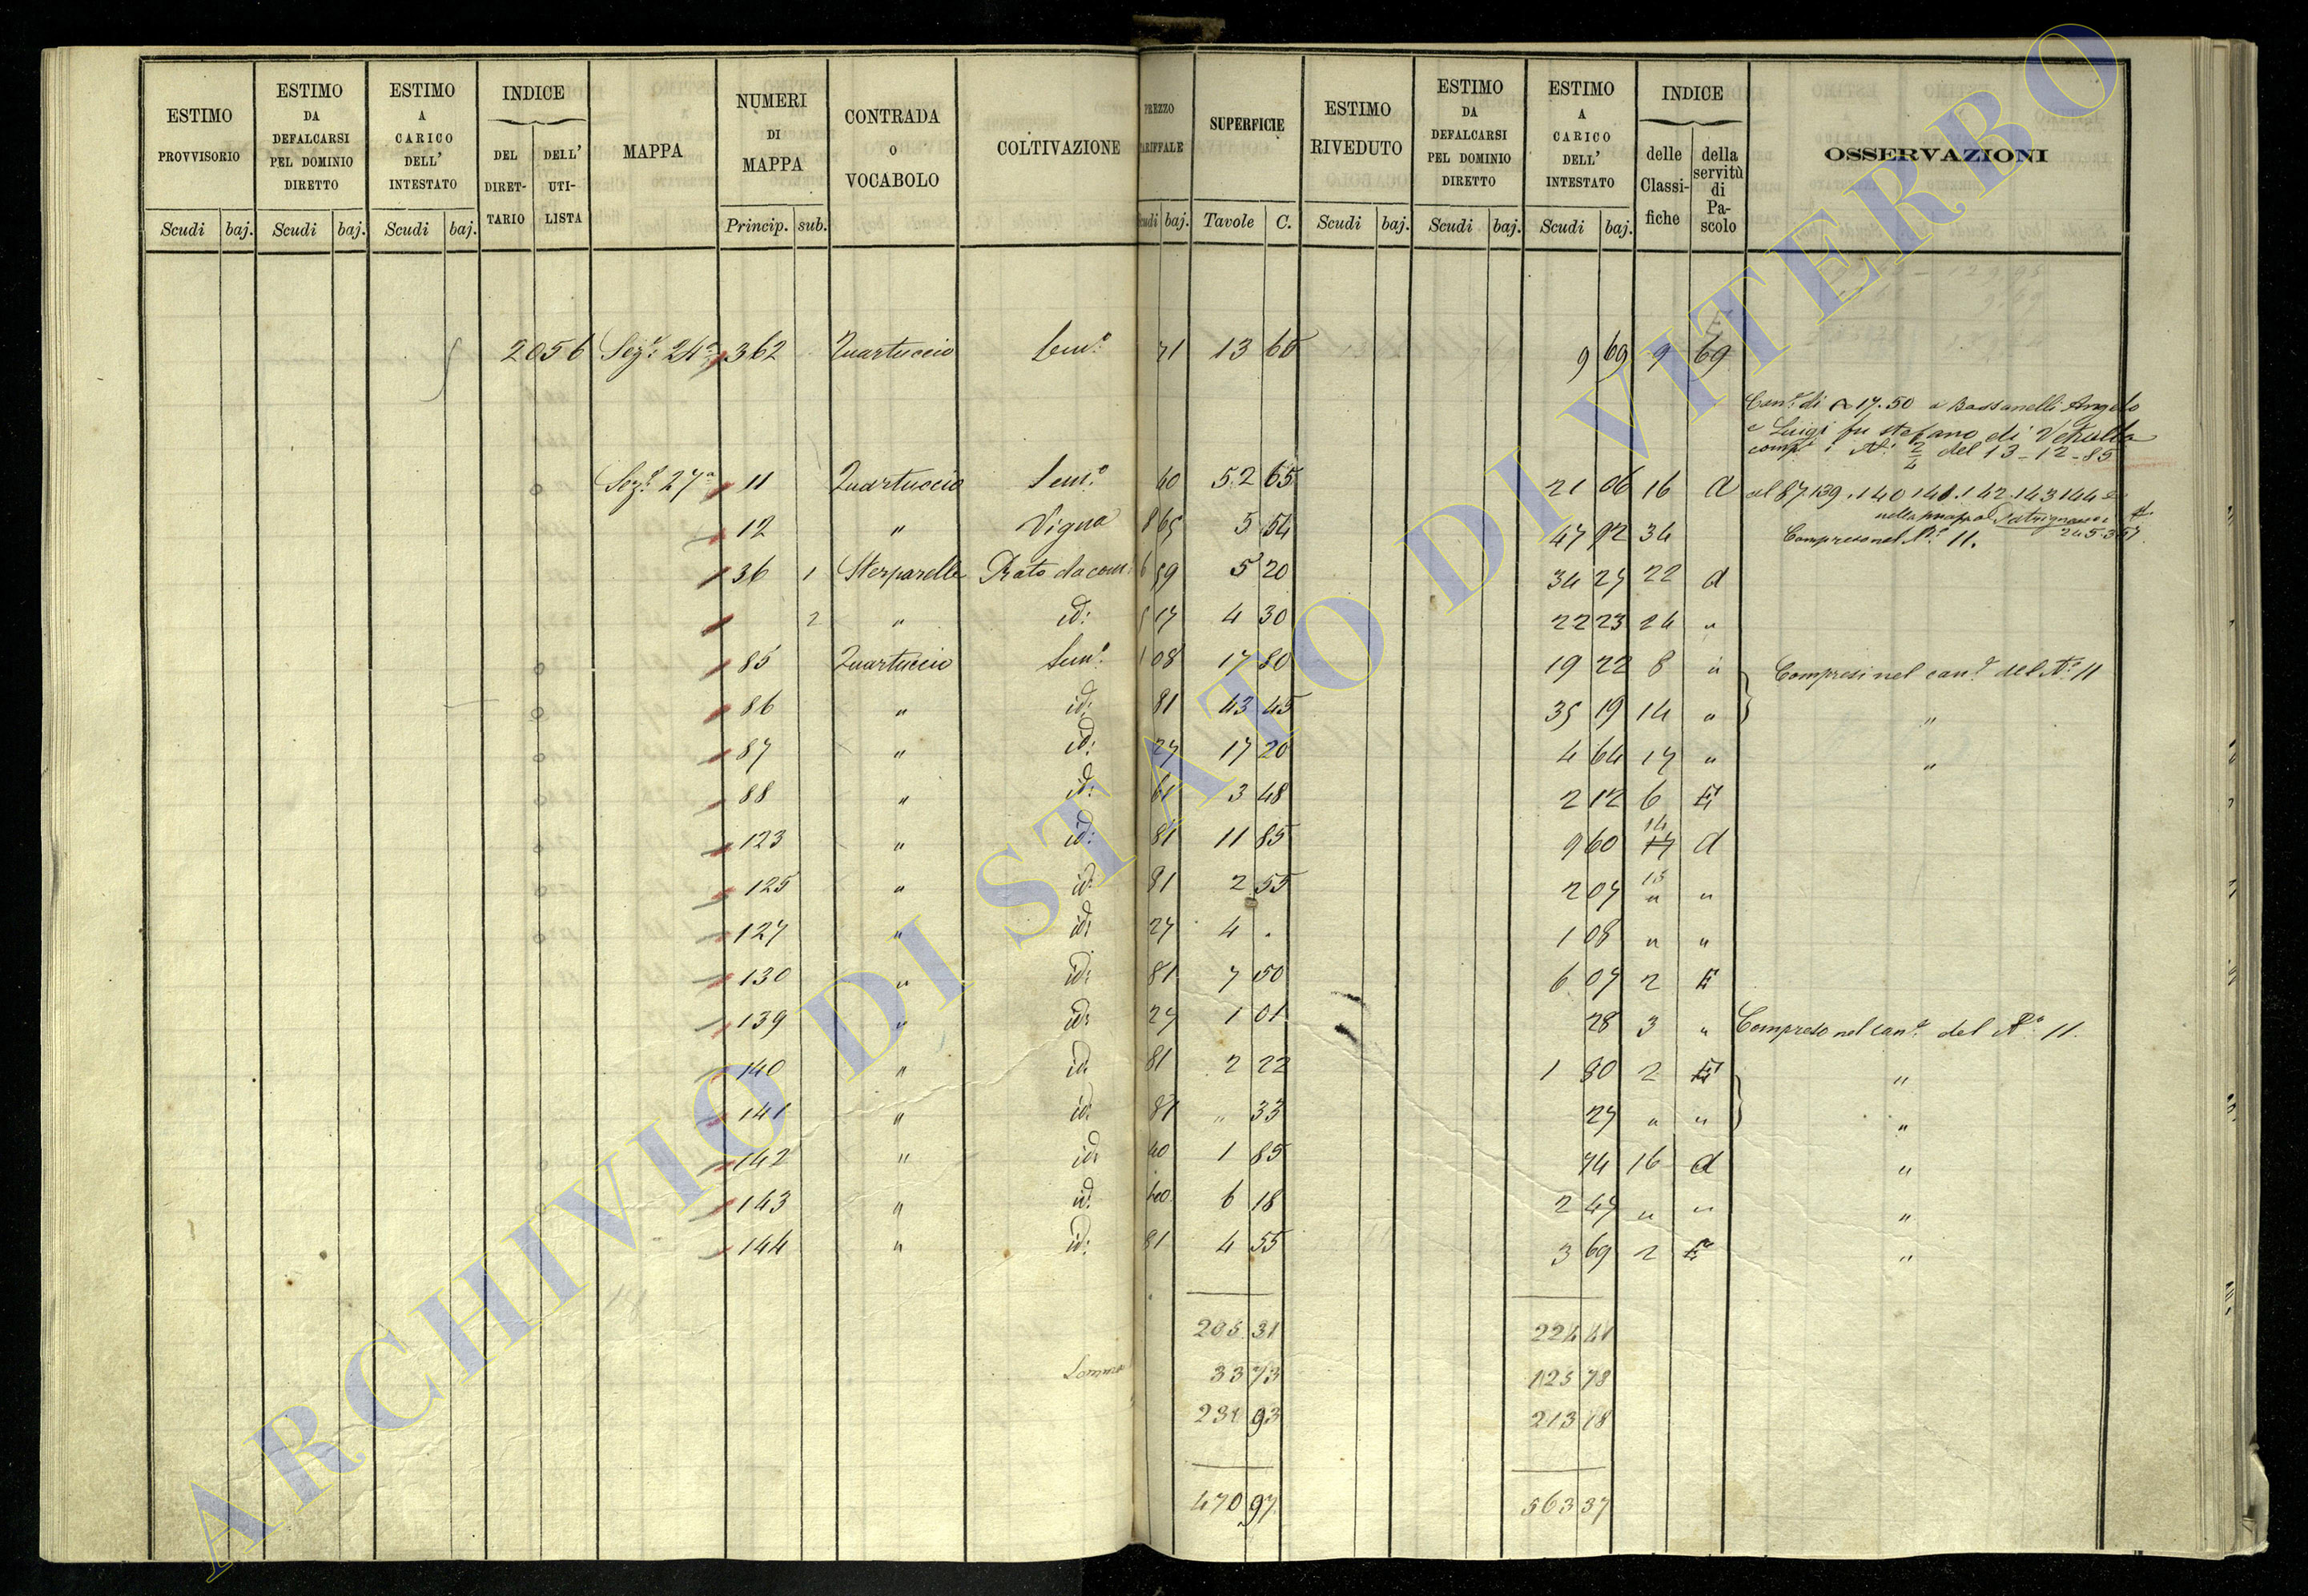 ESTIMO PROVVISORIO
Scudi baj.
ESTIMO DA DEFALCARSI PEL DOMINIO DIRETTO
Scudi baj.
ESTIMO A CARICO DELL' INTESTATO
Scudi baj.
INDICE
DEL DIRET- TARIO
DELL' UTI- LISTA
MAPPA
NUMERI DI MAPPA
Princip. sub.
CONTRADA O VOCABOLO
COLTIVAZIONE
PREZZO
baj.
SUPERFICIE
Tavole C.
ESTIMO RIVEDUTO
Scudi baj.
ESTIMO DA DEFALCARSI PEL DOMINIO DIRETTO
Scudi baj.
ESTIMO A CARICO DELL' INTESTATO
Scudi baj.
INDICE
delle Classi- fiche
della servitù di Pa- scolo
OSSERVAZIONI
2056 Sez.e 24a 362 Quartuccio Sem.o 71 13 65 9 69 9 69
Can.e di 17.50 a Bassanelli Angelo
e Luigi fu Stefano di Vetralla
comp. i N.i 2/4 del 13-12-85
Sez.e 27a 11 Quartuccio Sem.o 40 52 65 21 06 16 d al 87.139.140 141.142.143 144
12 " Vigna 8 65 5 54 47 92 34 Compreso nel N.o 11.
36 1 Sterparelle Prato da com. 6 59 5 20 34 27 22 d
2 " id: 5 17 4 30 22 23 24 "
85 Quartuccio Sem.o 1 08 17 80 19 22 8 " Compresi nel can.e del N.o 11
86 " id: 81 43 45 35 19 14 " "
87 " id: 27 17 20 4 64 17 " "
88 " id: 61 3 48 2 12 6
123 " id: 81 11 85 9 60 14 d
125 " id: 81 2 55 2 07 15 " "
127 " id: 27 4 . 1 08 " "
130 " id: 81 7 50 6 07 2
139 " id: 27 1 01 28 3 " Compreso nel can.e del N.o 11.
140 " id. 81 2 22 1 80 2 "
141 " id: 81 " 33 27 " " "
142 " id: 40 1 85 74 16 d "
143 " id: 40 6 18 2 47 " " "
144 " id: 81 4 55 3 69 2 "
205 31 224 41
Somma 33 73 125 78
231 93 213 18
470 97 563 37
ARCHIVIO DI STATO DI VITERBO